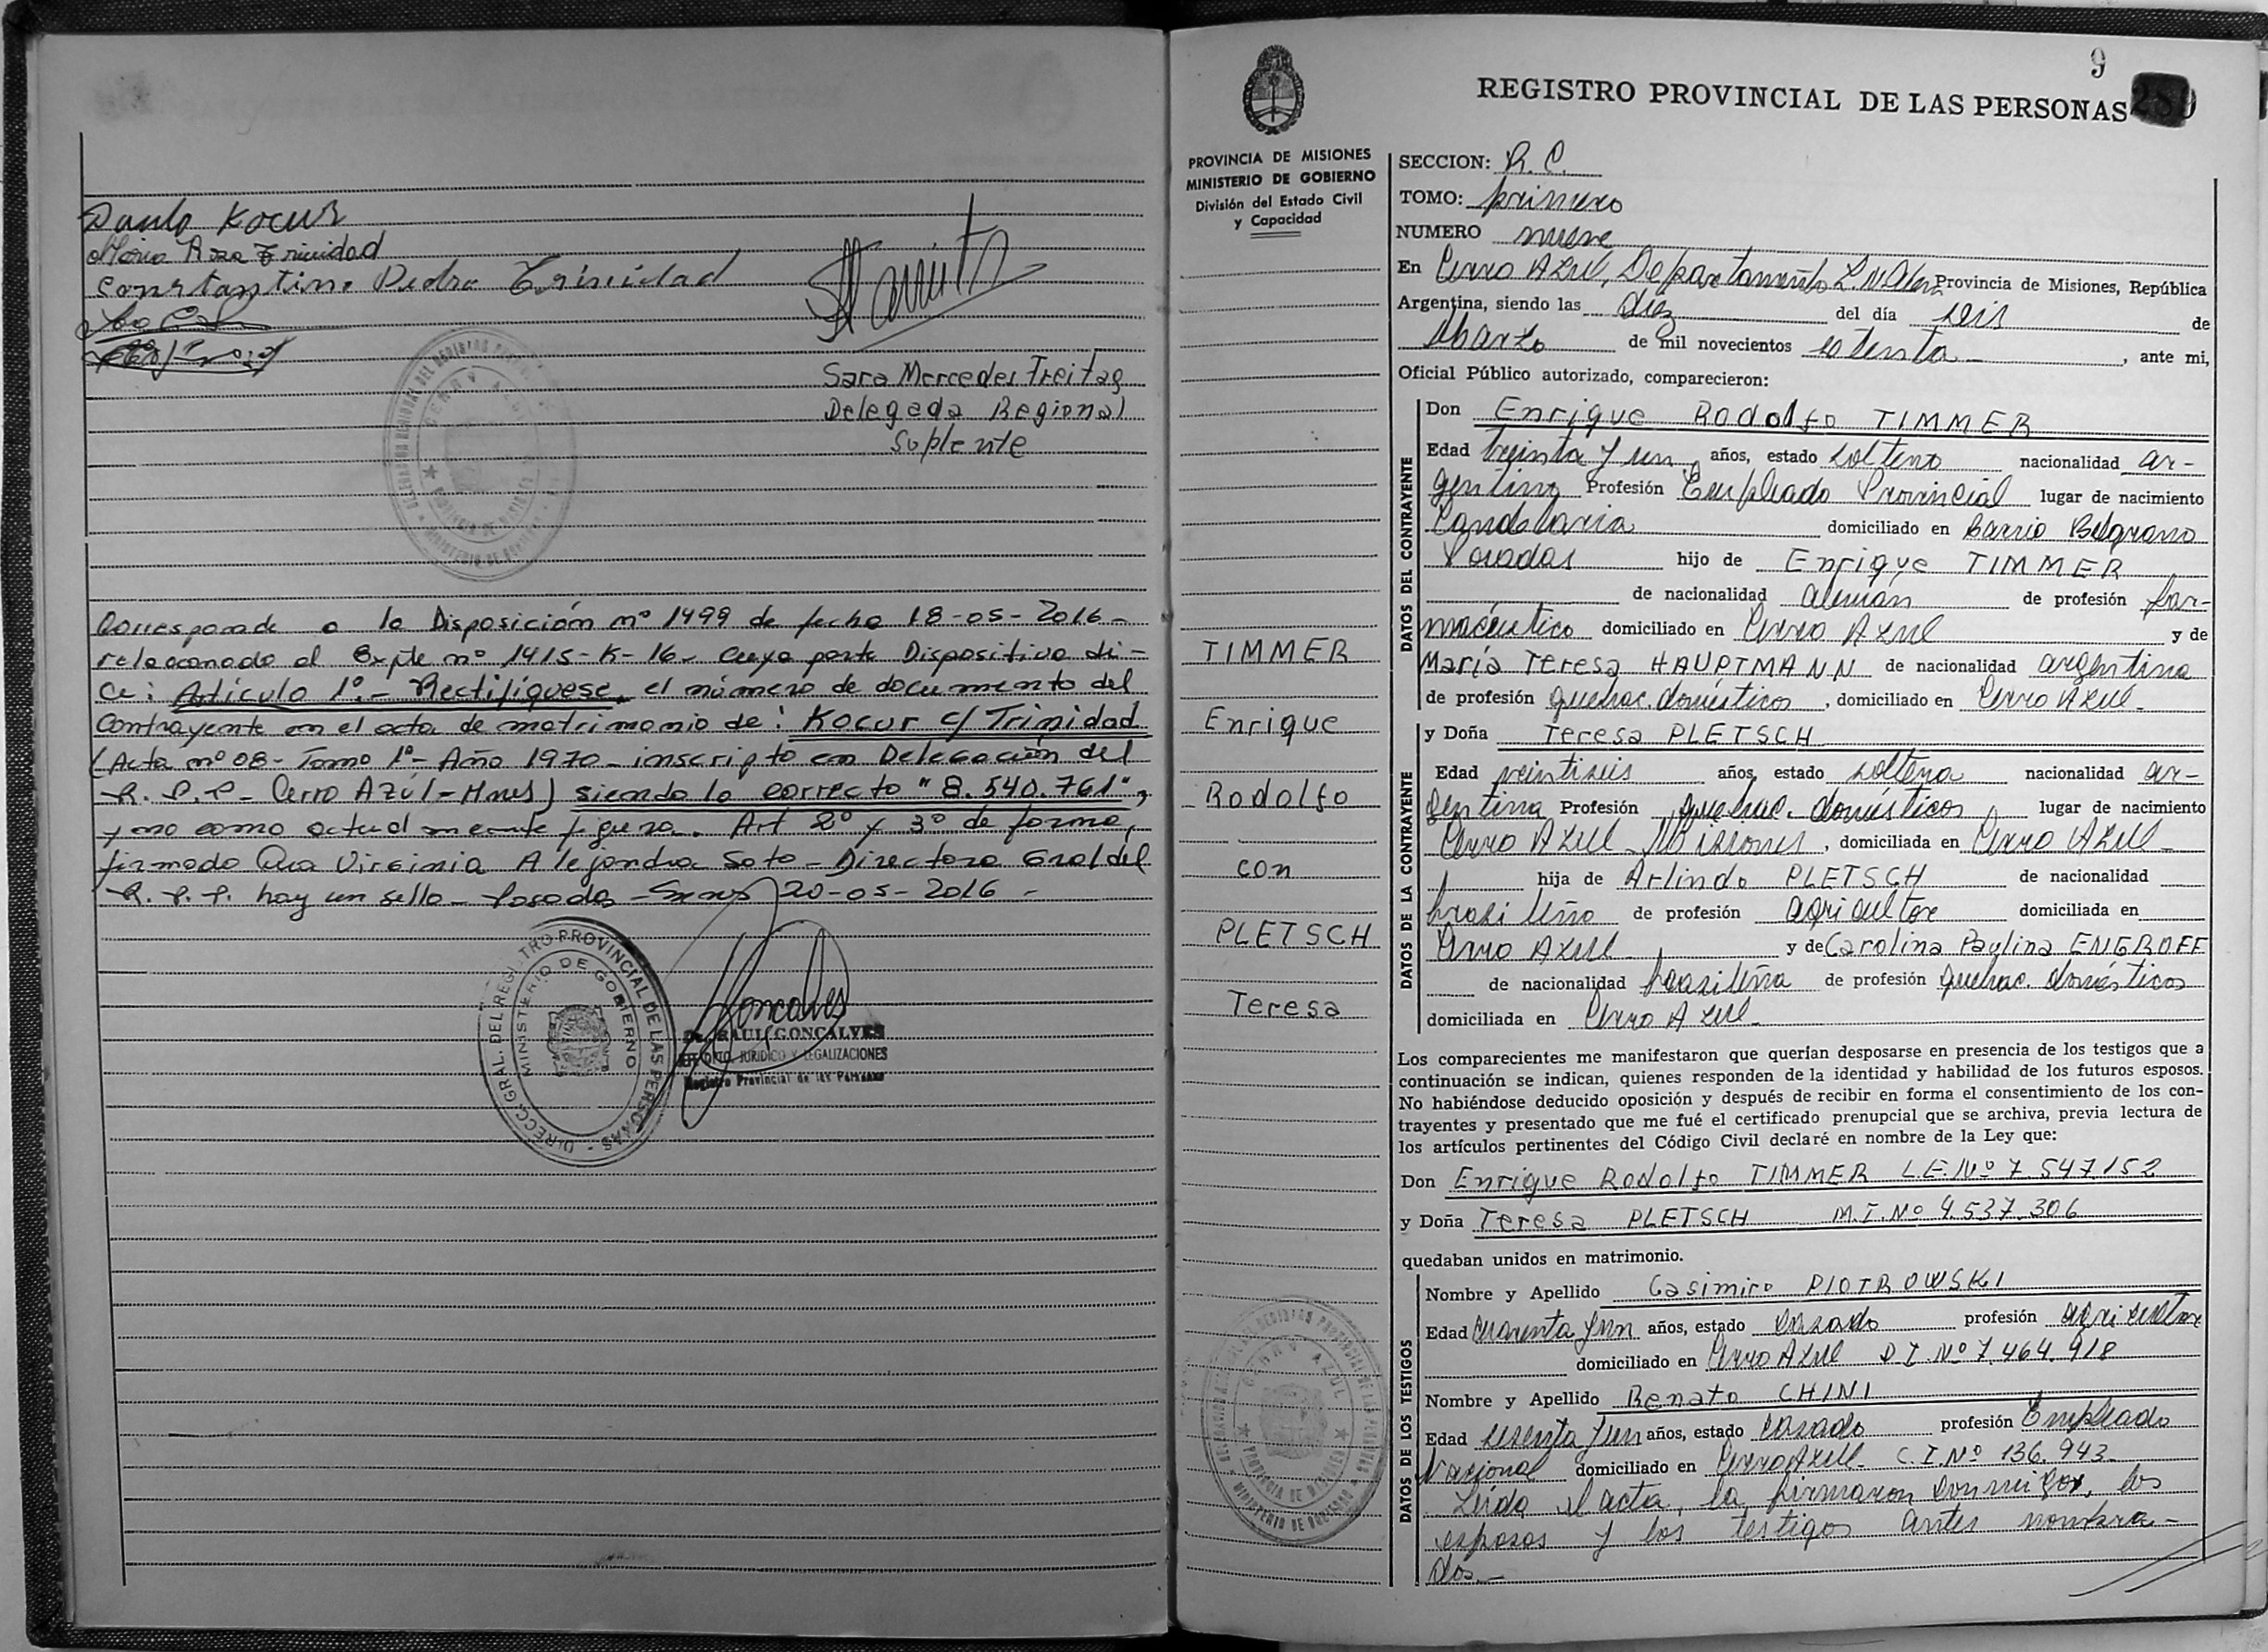 Danlo Kocur
Maria Rosa Trinidad
Constantino Pedro Trinidad
Sara Mercedes Freitag
Delegada Regional
Suplente
Corresponde a la Disposición nº 1499 de fecha 18-05-2016-
relacionado al Expte nº 1415-K-16- Cuya parte Dispositiva di-
ce: Artículo 1º.- Rectifíquese, el número de documento del
Contrayente en el acta de matrimonio de: Kocur c/ Trinidad
(Acta nº 08- Tomo 1º- Año 1970- inscripto en Delegación del
R. P. P- Cerro Azúl-Mnes) siendo lo correcto "8.540.761",
y no como actualmente figura. Art 2º y 3º de forma,
firmado Dra Virginia Alejandra Soto- Directora Gral del
R. P. P. hay un sello- Posadas -Mnes 20-05-2016-
DIRECC. GRAL. DEL REGISTRO PROVINCIAL DE LAS PERSONAS
MINISTERIO DE GOBIERNO
Goncalves
Dr. RAUL GONCALVES
DPTO. JURIDICO Y LEGALIZACIONES
Registro Provincial de las Personas
9
REGISTRO PROVINCIAL DE LAS PERSONAS 280
PROVINCIA DE MISIONES
MINISTERIO DE GOBIERNO
División del Estado Civil
y Capacidad
TIMMER
Enrique
Rodolfo
con
PLETSCH
Teresa
SECCION: R. C.
TOMO: primero
NUMERO nueve
En Cerro Azul, Departamento L. N. Alem Provincia de Misiones, República
Argentina, siendo las diez del día seis de
Marzo de mil novecientos setenta , ante mi,
Oficial Público autorizado, comparecieron:
DATOS DEL CONTRAYENTE
Don Enrique Rodolfo TIMMER
Edad treinta y un años, estado soltero nacionalidad ar-
gentino Profesión Empleado Provincial lugar de nacimiento
Candelaria domiciliado en Barrio Belgrano
Posadas hijo de Enrique TIMMER
de nacionalidad alemán de profesión far-
macéutico domiciliado en Cerro Azul y de
María Teresa HAUPTMANN de nacionalidad argentina
de profesión quehac. domésticos , domiciliado en Cerro Azul-
DATOS DE LA CONTRAYENTE
y Doña Teresa PLETSCH
Edad veintiseis años, estado soltera nacionalidad ar-
gentina Profesión quehac. domésticos lugar de nacimiento
Cerro Azul - Misiones , domiciliada en Cerro Azul-
hija de Arlindo PLETSCH de nacionalidad
brasileño de profesión agricultor domiciliada en
Cerro Azul- y de Carolina Paulina ENGROFF
de nacionalidad brasileña de profesión quehac. domésticos
domiciliada en Cerro Azul-
Los comparecientes me manifestaron que querían desposarse en presencia de los testigos que a
continuación se indican, quienes responden de la identidad y habilidad de los futuros esposos.
No habiéndose deducido oposición y después de recibir en forma el consentimiento de los con-
trayentes y presentado que me fué el certificado prenupcial que se archiva, previa lectura de
los artículos pertinentes del Código Civil declaré en nombre de la Ley que:
Don Enrique Rodolfo TIMMER L.E.Nº 7.547.152
y Doña Teresa PLETSCH M.I.Nº 4.537.306
quedaban unidos en matrimonio.
DATOS DE LOS TESTIGOS
Nombre y Apellido Casimiro PIOTROWSKI
Edad cuarenta y un años, estado casado profesión agricultor
domiciliado en Cerro Azul D.I.Nº 7.464.918
Nombre y Apellido Renato CHINI
Edad sesenta y un años, estado casado profesión Empleado
Nacional domiciliado en Cerro Azul- C.I.Nº 136.943-
Leída el acta, la firmaron conmigo, los
esposos y los testigos antes nombra-
dos.-